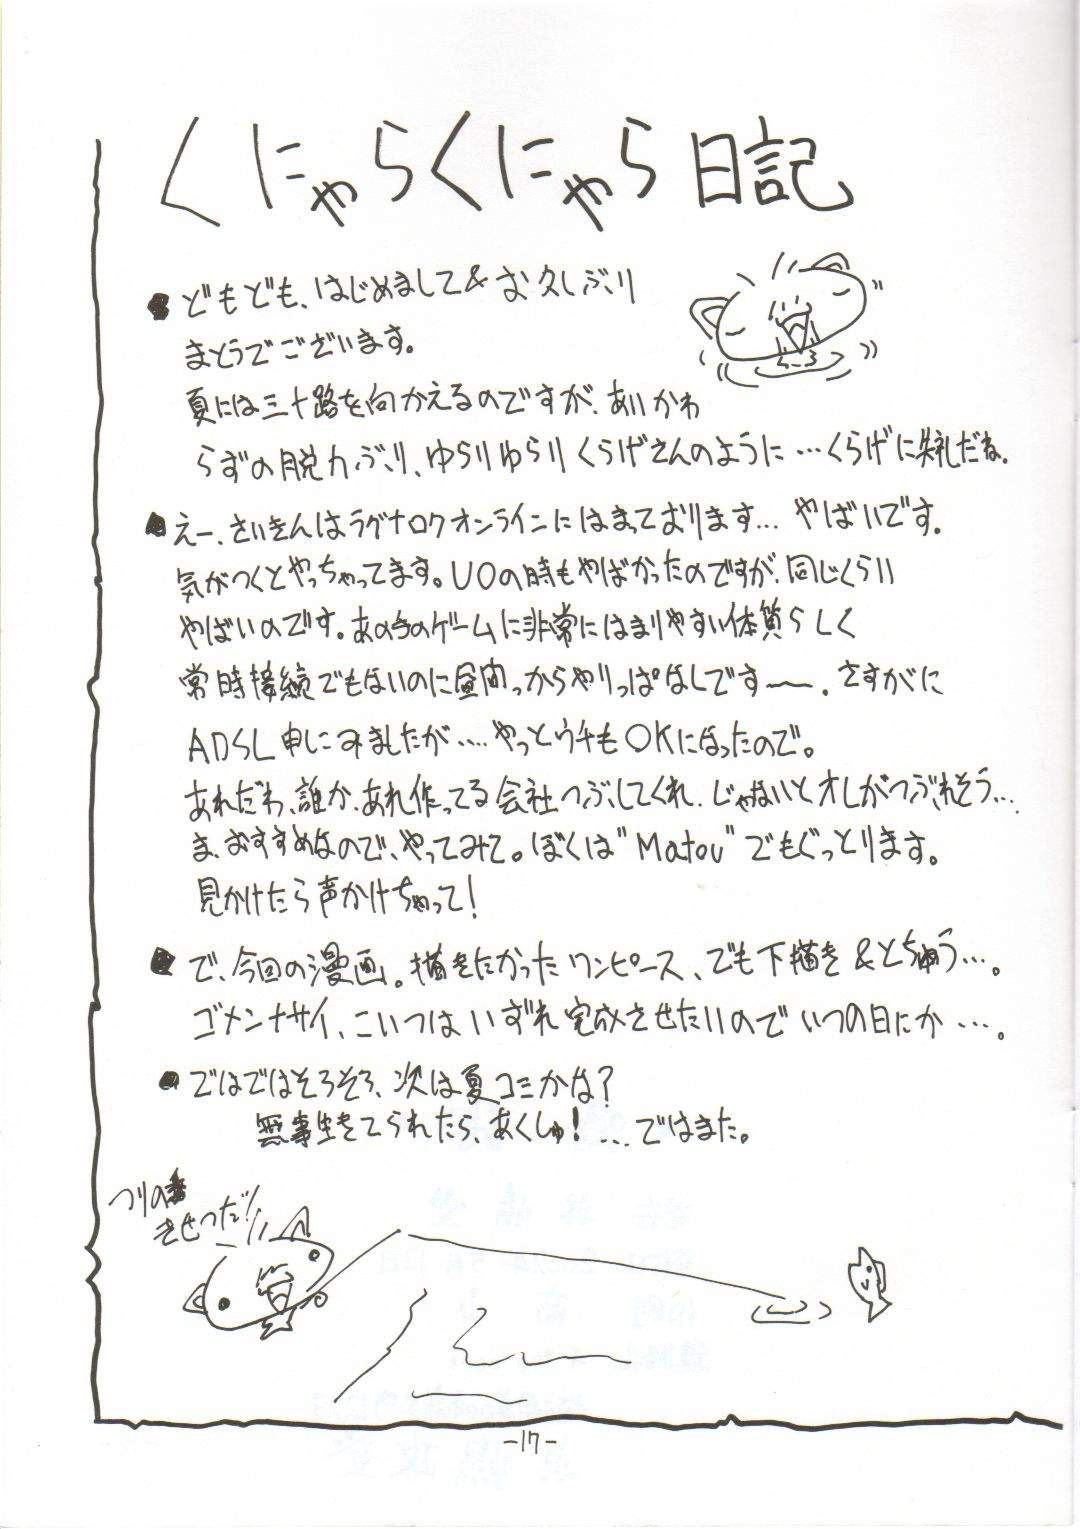 くにゃらくにゃら日記
●どもども、はじめまして&お久しぶり
まとうでございます。
夏には三十路を向かえるのですが、あいかわ
らずの脱力ぶり、ゆらりゆらりくらげさんのように…くらげに失礼だね。
●えー、さいきんはラグナロクオンラインにはまっております… やばいです。
気がつくとやっちゃってます。UOの時もやばかったのですが、同じくらい
やばいのです。あの手のゲームに非常にはまりやすい体質らしく
常時接続でもないのに昼間っからやりっぱなしです〜〜。さすがに
ADSL申しこみましたが‥‥やっとウチもOKになったので。
あれだわ、誰か、あれ作ってる会社つぶしてくれ、じゃないとオレがつぶれそう…
ま、おすすめなので、やってみて。ぼくは"Matou"でもぐっとります。
見かけたら声かけちゃって!
●で、今回の漫画。描きたかったワンピース、でも下描き&とちゅう…。
ゴメンナサイ、こいつはいずれ完成させたいのでいつの日にか…。
●ではではそろそろ、次は夏コミかな?
無事生きてられたら、あくしゅ!…ではまた。
つりの
きせつだ!!
-17-